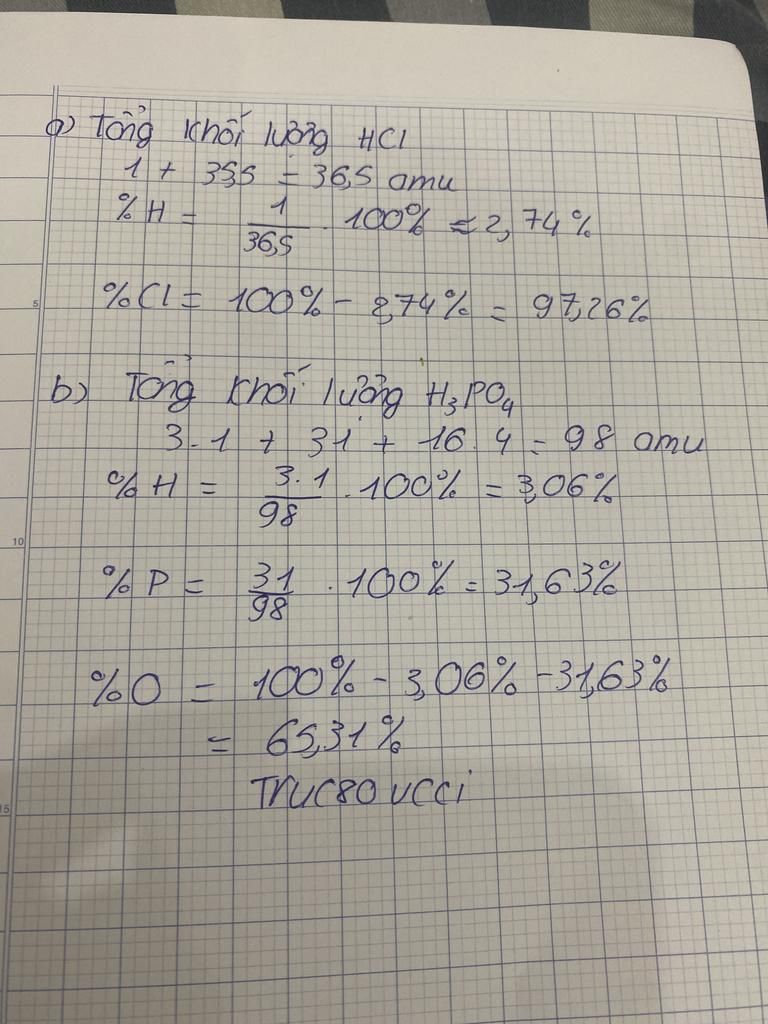 a) Tổng khối lượng HCl
1 + 35,5 = 36,5 amu
%H = 1/36,5 . 100% ≈ 2,74%
5
%Cl = 100% - 2,74% = 97,26%
b) Tổng khối lượng H₃PO₄
3.1 + 31 + 16.4 = 98 amu
%H = 3.1/98 . 100% = 3,06%
10
%P = 31/98 . 100% = 31,63%
%O = 100% - 3,06% - 31,63%
= 65,31%
Truc80ucci
15